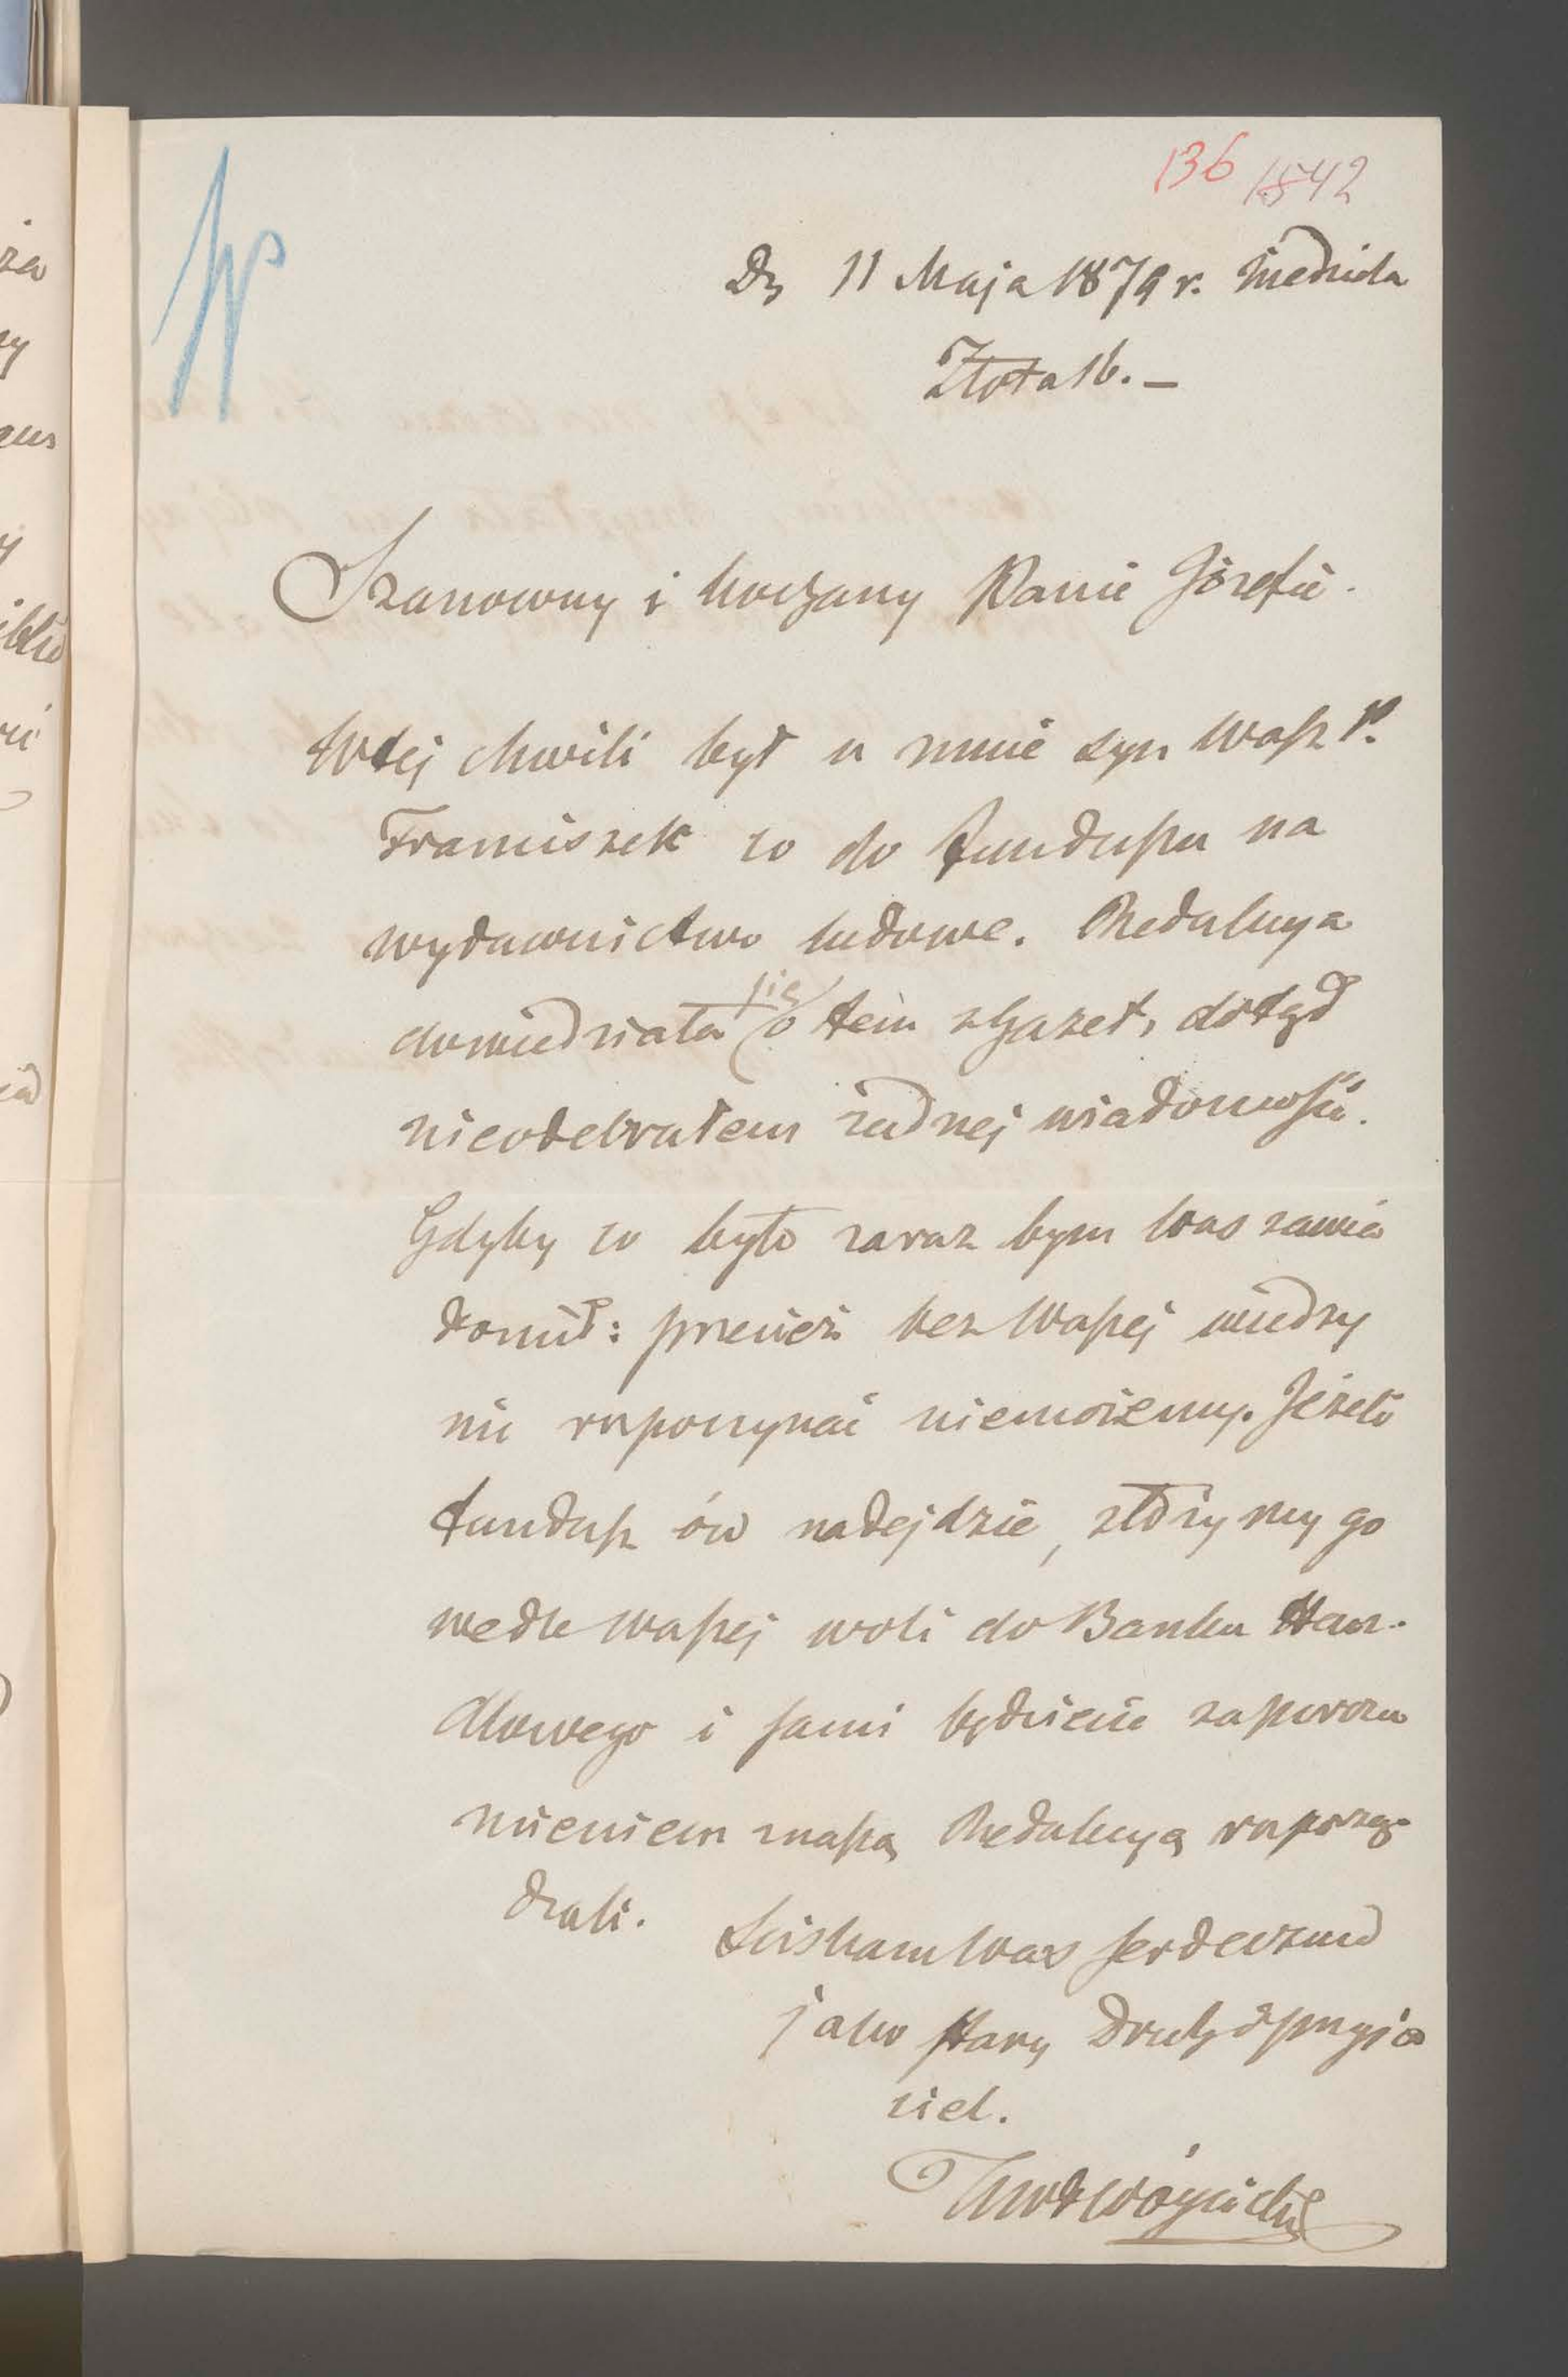 136 1542
D. 11 Maja 1879 r. Niedziela
Złota 16. —
Szanowny i kochany Panie Józefie.
W tej chwili był u mnie syn Wasz P.
Franciszek co do funduszu na
wydawnictwo ludowe. Redakcya
dowiedziała się o tem z gazet, dotąd
nieodebrałem żadnej wiadomości.
Gdyby co było zaraz bym Was zawia
domił: przecież bez Waszej wiedzy
nic rozpoczynać niemożemy. Jeżeli
fundusz ów nadejdzie, złożymy go
wedle Waszej woli do Banku Han-
dlowego i sami będziecie za porozu
mieniem z naszą Redakcyą rozporzą-
dzali.
Ściskam Was serdecznie
jako stary Druh i przyja
ciel.
KWł Wóycicki